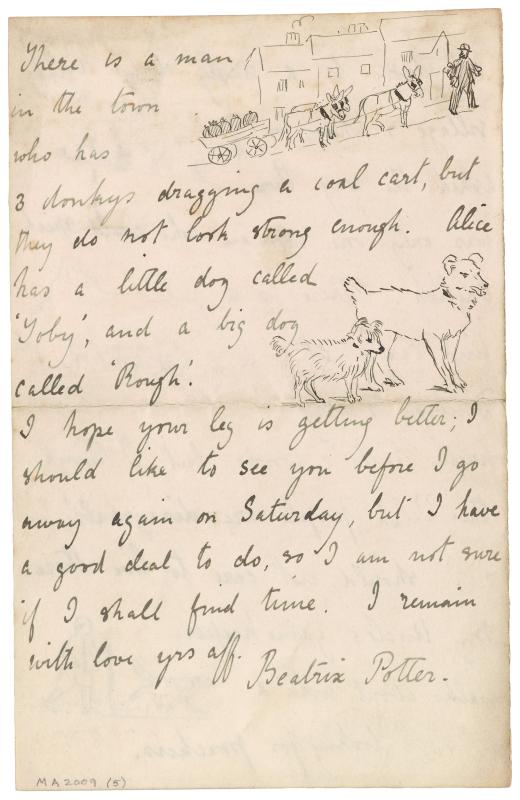 There is a man
in the town
who has
3 donkys dragging a coal cart, but
they do not look strong enough. Alice
has a little dog called
'Toby', and a big dog
called 'Rough'.
I hope your leg is getting better; I
should like to see you before I go
away again on Saturday, but I have
a good deal to do, so I am not sure
if I shall find time. I remain
with love yrs aff.
Beatrix Potter.
MA2009 (5)